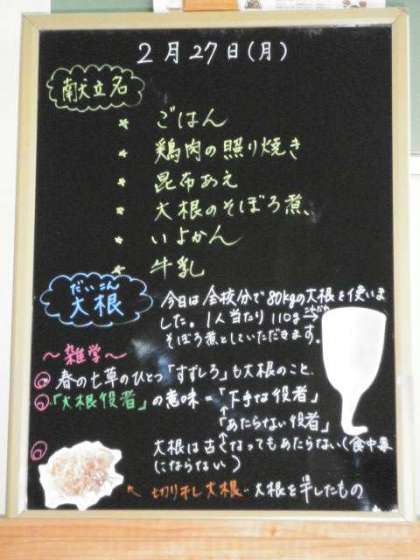 2月27日(月)
献立名
★ ごはん
★ 鶏肉の照り焼き
★ 昆布あえ
★ 大根のそぼろ煮、
★ いよかん
★ 牛乳
だいこん
大根
今日は全校分で80kgの大根を使いま
した。1人当たり110g→
そぼろ煮としていただきます。
〜雑学〜
◎ 春の七草のひとつ「すずしろ」も大根のこと、
◎ 「大根役者」の意味=「下手な役者」
↑
「あたらない役者」
↑
大根は古くなってもあたらない(食中毒
にならない)
← 切り干し大根…大根を干したもの